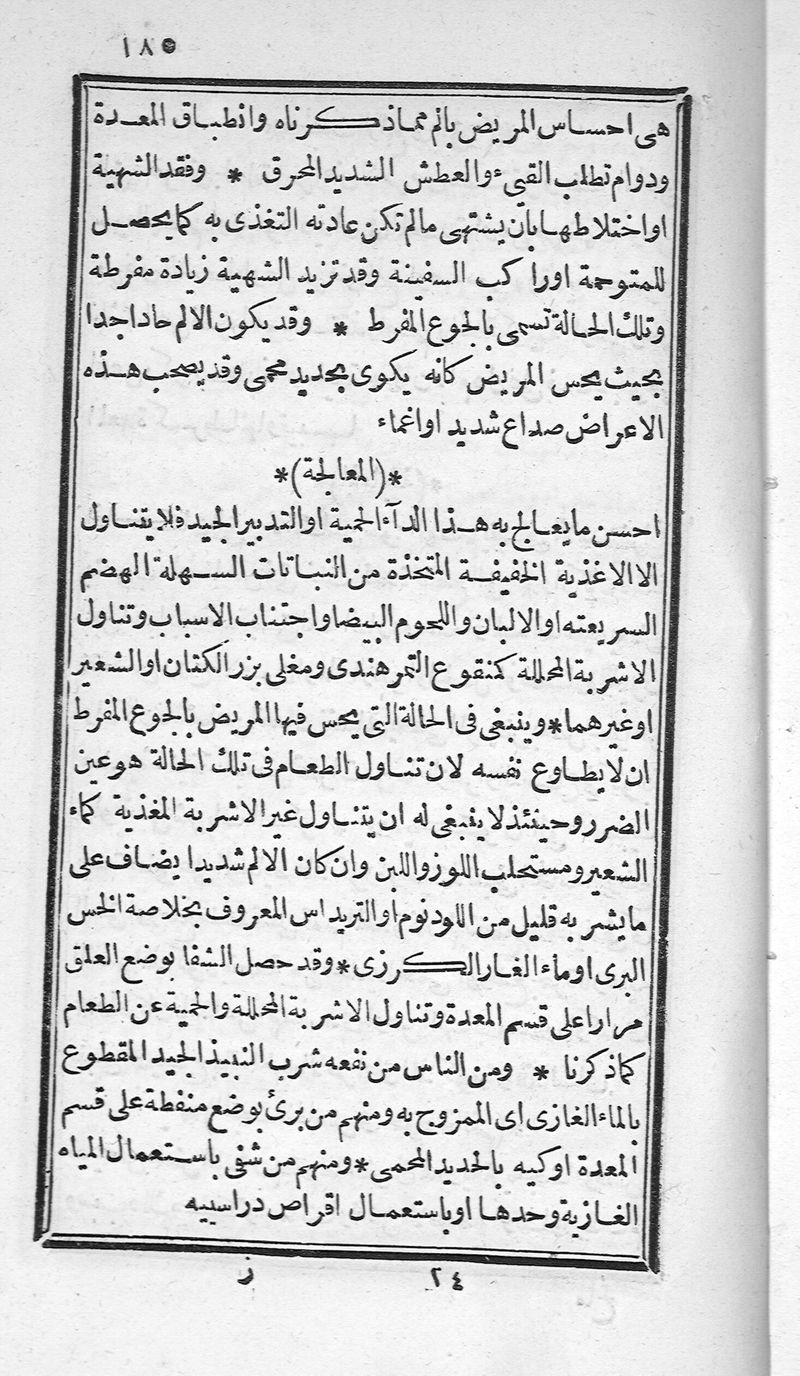 ١٨٥
هى احساس المريض بالم مماذكرناه وانطباق المعدة
ودوام تطلب القىء والعطش الشديد المحرق * وفقد الشهية
او اختلاطها بان يشتهى مالم تكن عادته التغذى به كما يحصل
للمتوحمة او راكب السفينة وقد تزيد الشهية زيادة مفرطة
وتلك الحالة تسمى بالجوع المفرط * وقد يكون الالم حادا جدا
بحيث يحس المريض كانه يكوى بحديد محمى وقد يصحب هذه
الاعراض صداع شديد او اغماء
*(المعالجة)*
احسن ما يعالج به هذا الدآء الحمية او التدبير الجيد فلا يتناول
الا الاغذية الخفيفة المتخذة من النباتات السهلة الهضم
السريعته او الالبان واللحوم البيضا واجتناب الاسباب وتناول
الاشربة المحللة كمنقوع التمر هندى ومغلى بزر الكتان او الشعير
او غيرهما * وينبغى فى الحالة التى يحس فيها المريض بالجوع المفرط
ان لا يطاوع نفسه لان تناول الطعام فى تلك الحالة هو عين
الضرر وحينئذ لا ينبغى له ان يتناول غير الاشربة المغذية كماء
الشعير ومستحلب اللوز واللبن وان كان الالم شديدا يضاف على
ما يشربه قليل من اللودنوم او التريداس المعروف بخلاصة الخس
البرى او ماء الغار الكرزى * وقد حصل الشفا بوضع العلق
مرارا على قسم المعدة وتناول الاشربة المحللة والحمية عن الطعام
كماذكرنا * ومن الناس من نفعه شرب النبيذ الجيد المقطوع
بالماء الغازى اى الممزوج به ومنهم من برئ بوضع منفطة على قسم
المعدة او كيه بالحديد المحمى * ومنهم من شفى باستعمال المياه
الغازية وحدها او باستعمال اقراص دراسييه
٢٤ ز